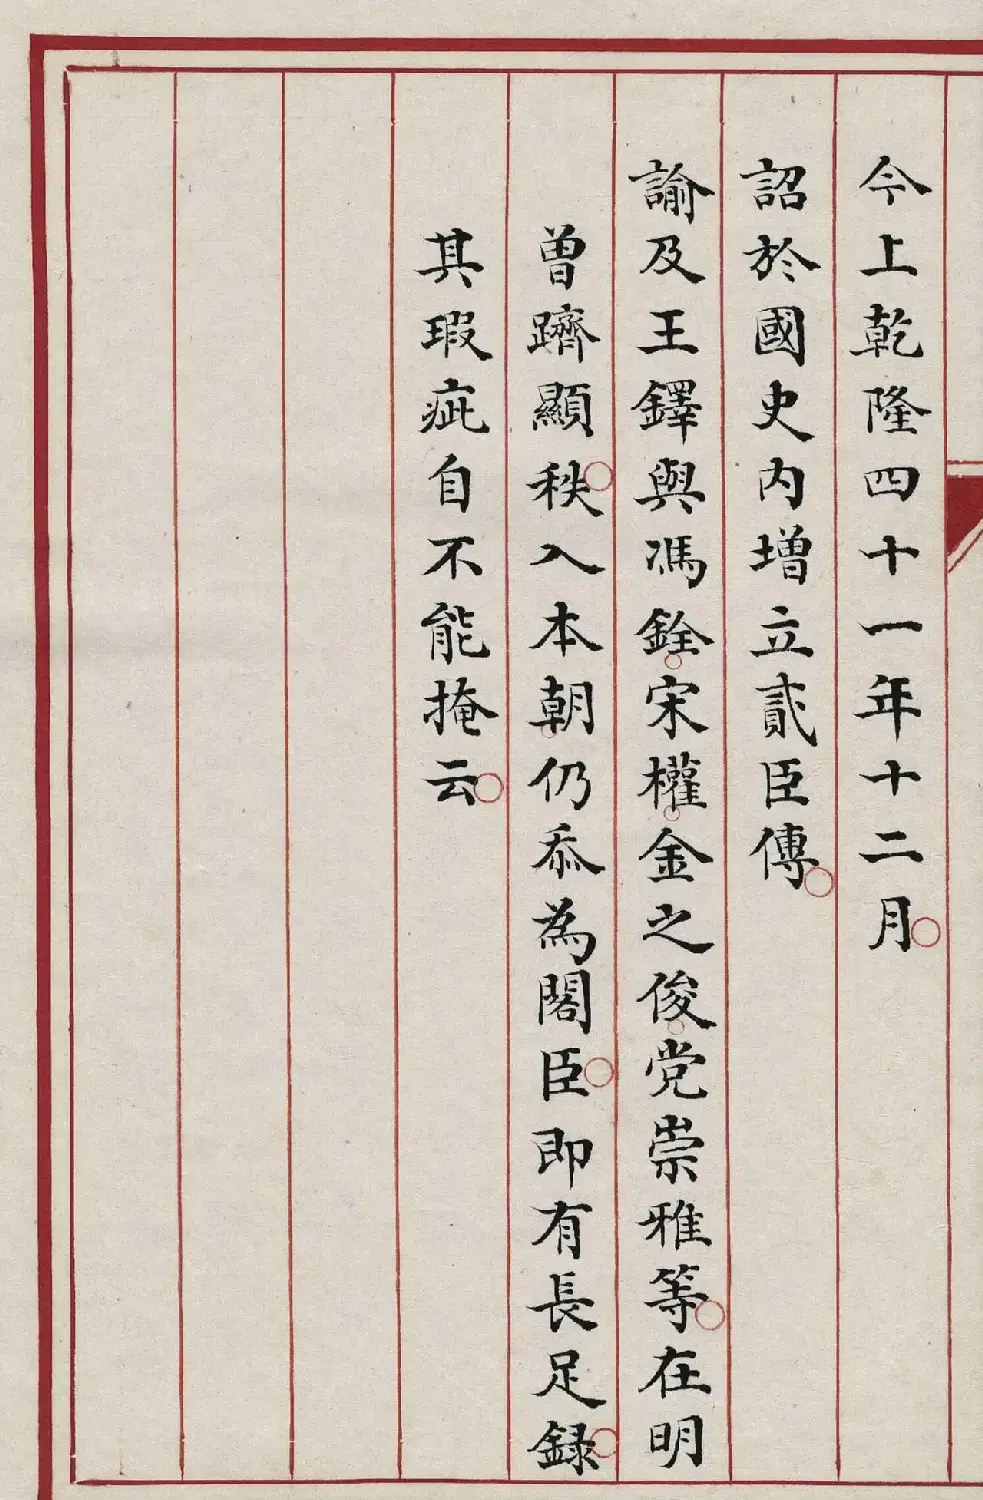 今上乾隆四十一年十二月
詔於國史内增立貳臣傳
諭及王鐸與馮銓宋權金之俊党崇雅等在明
曽躋顯秩入本朝仍忝為閣臣即有長足録
其瑕疵自不能掩云